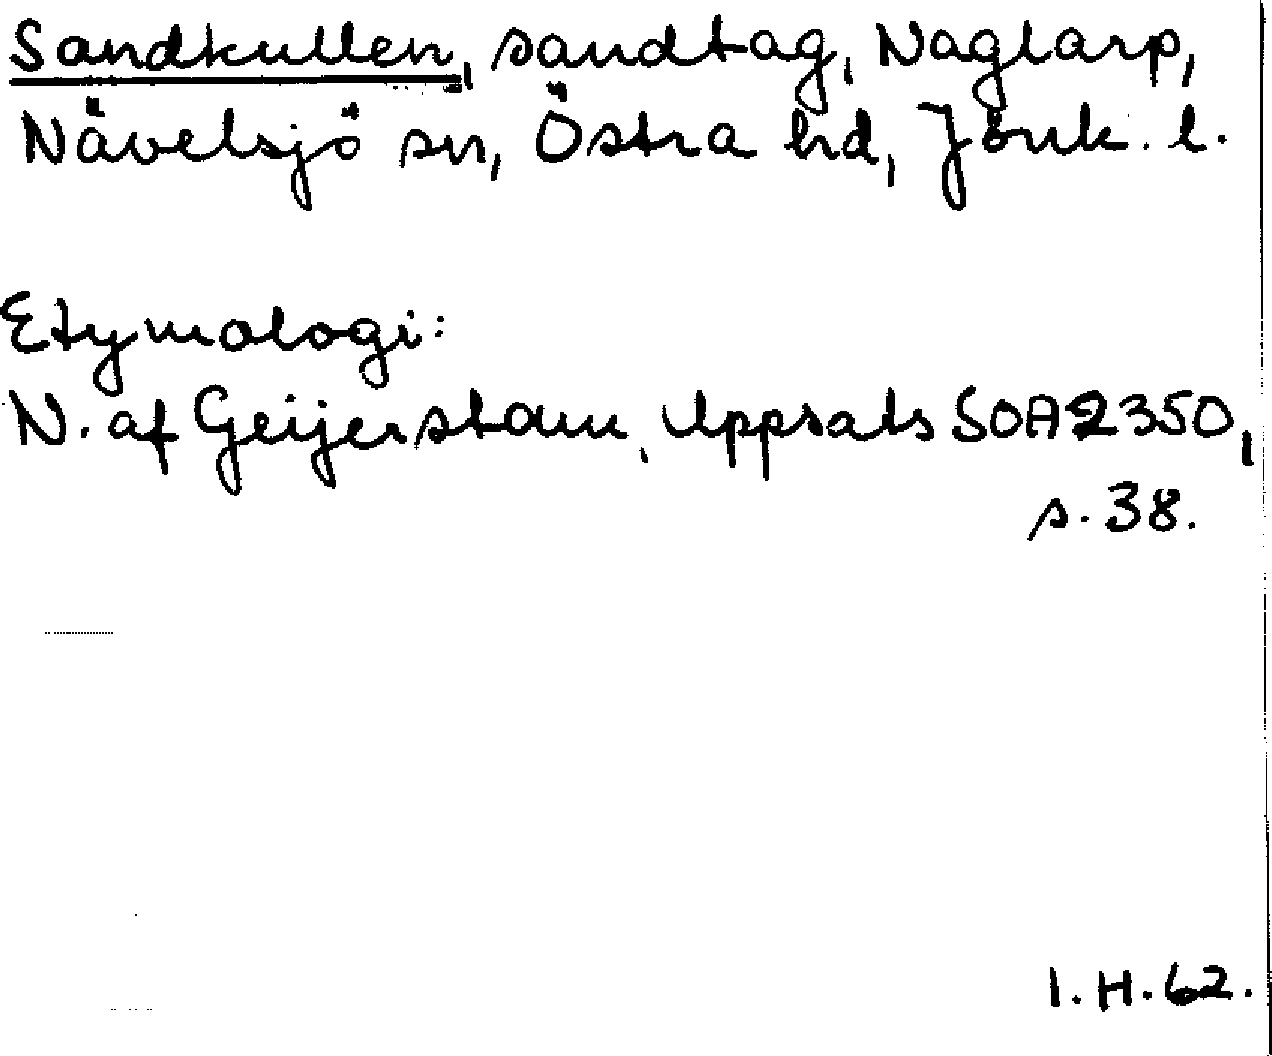 Sandkullen, sandtag, Naglarp,
Nävelsjö sn, Östra hd, Jönk. l.
Etymologi:
N. af Geijerstam, Uppsats SOA 2350,
s. 38.
I. H. 62.